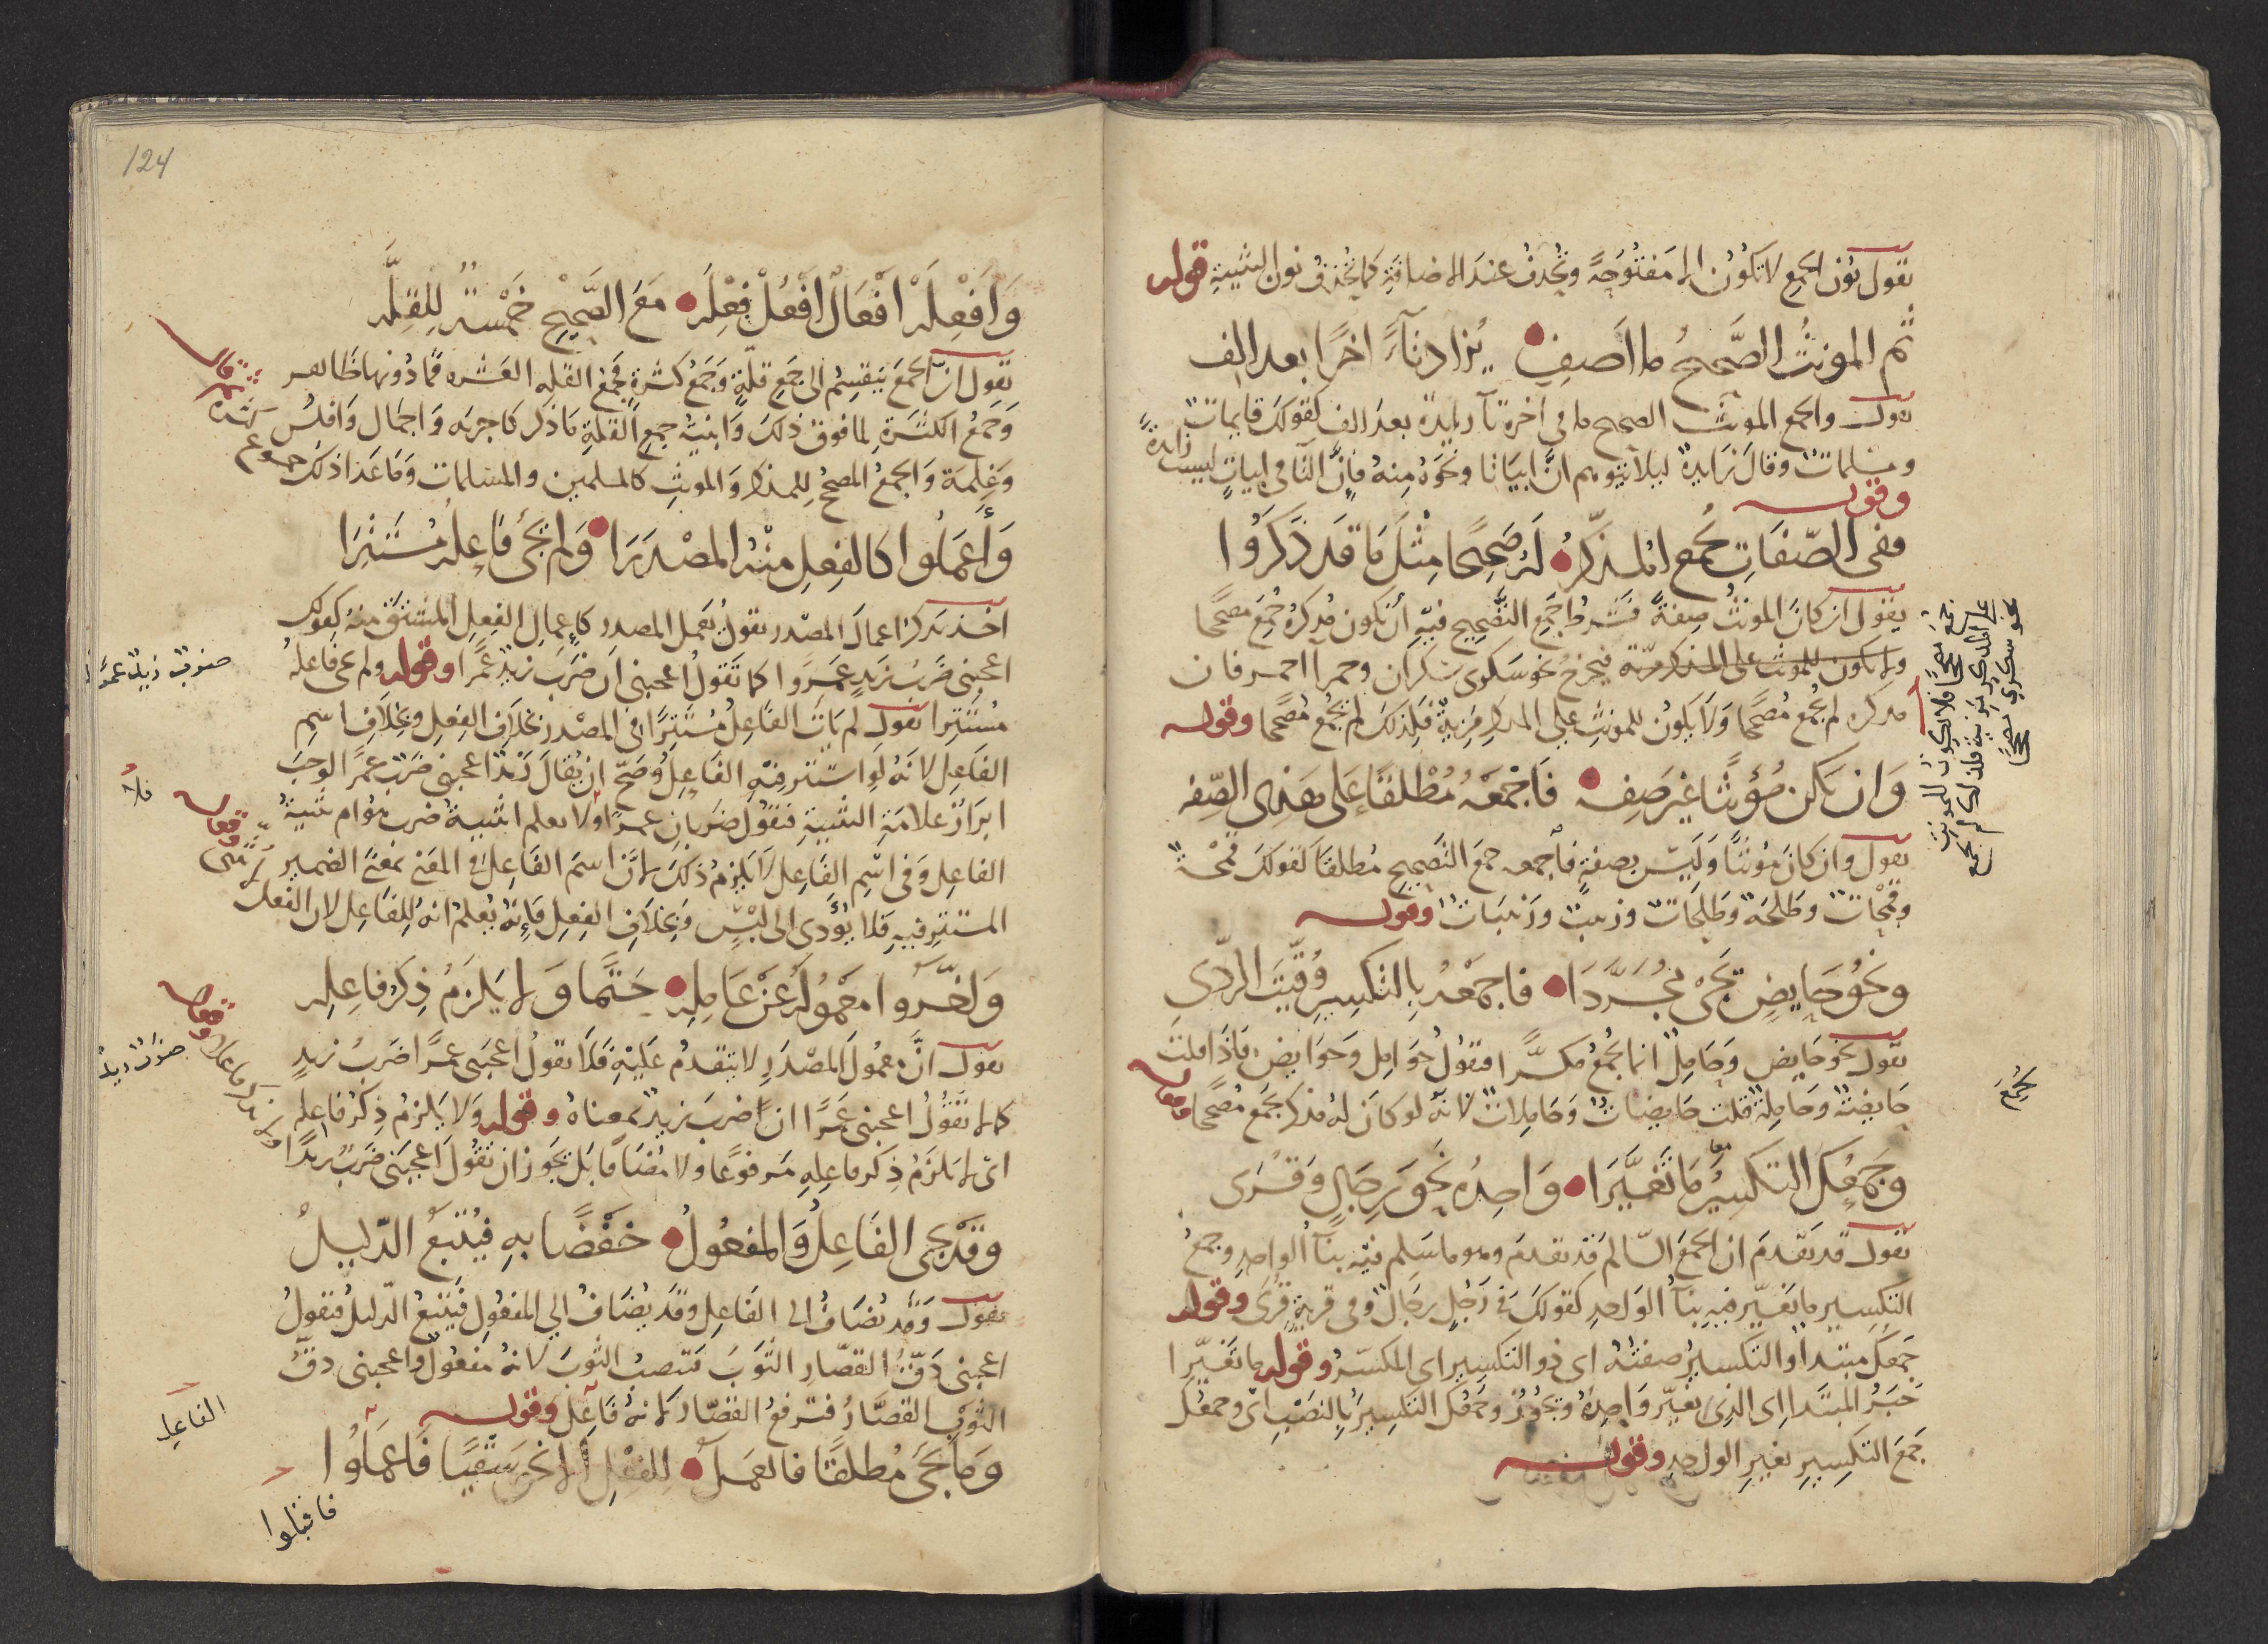 يقول نون الجمع لا تكون الا مفتوحة وتحذف عند الاضافة كما تحذف نون التثنية قوله
ثم المونث الصحيح ما اصف يزاد تاءً اخرًا بعد الف
يقول والجمع المونث الصحيح ما في اخره تآ زايدة بعد الف كقولك قايمات
ومسلمات وقال زايدة ليلا يتوهم ان ابياتا ونحوه منه فان التا في ابيات ليست زايدة
وقوله
وفي الصفات جمع المذكر له صحيحا مثل ما قد ذكروا
يقول ان كان المونث صفة فشرط جمع التصحيح فيه أن يكون مذكره جمع مصححا
ولا يكون للمونث على المذكر مزية فيخرج نحو سكرى سكران وحمرا احمر فان
مذكره لم يجمع مصححا ولا يكون للمونث على المذكر مزية فلذلك لم يجمع مصححا وقوله
وان يكن مؤنثا غير صفه فاجمعه مطلقا على هذي الصفه
يقول وان كان مونثا وليس بصفة فاجمعه جمع التصحيح مطلقا كقولك قمحة
وقمحات وطلحة وطلحات وزينب وزينبات وقوله
ونحو حايض تجي مجردا فاجمعه بالتكسير وقيت الردي
يقول نحو حايض وحامل انما يجمع مكسرا فتقول حوامل وحوايض فاذا قلت
حايضة وحاملة قلت حايضات وحاملات لانه لو كان له مذكر يجمع مصححا وقوله
يجمع
وجمعك التكسير ما تغيرا واحده نحو رجال وقرى
يقول قد تقدم ان الجمع السالم قد تقدم وهو ما سلم فيه بنآ الواحد وجمع
التكسير ما يتغير فيه بنآ الواحد كقولك في رجل رجال وفي قرية قرى وقوله
جمعك مبتدا والتكسير صفته اى ذو التكسير اى المكسر وقوله ما تغيرا
خبر المبتدا اى الذي يغير واحده ويجوز وجمعك التكسير بالنصب اى وجمعك
جمع التكسير تغيير الواحد وقوله
124
وافعله افعال افعل فعله مع الصحيح خمسة للقله
يقول ان الجمع ينقسم الى جمع قلة وجمع كثرة فجمع القله العشره فما دونها ظاهر
وجمع الكثرة لما فوق ذلك وابنية جمع القلة ما ذكر كاجربه واجمال وافلس
وغلمة والجمع المصحح للمذكر والمونث كالمسلمين والمسلمات وما عدا ذلك جموع كثرة
ثم قال
وأعملوا كالفعل منه المصدرا ولم يجئ فاعله مستترا
اخذ يذكر اعمال المصدر يقول يعمل المصدر كإعمال الفعل المشتق منه كقولك
اعجبني ضرب زيد عمروا كما تقول اعجبني ان ضرب زيد عمرا وقوله ولم يجئ فاعله
مستترا يقول لم يات الفاعل مستترا في المصدر بخلاف الفعل وبخلاف اسم
الفاعل لانه لو استتر فيه الفاعل وصح ان يقال زيد اعجبني ضرب عمرا لوجب
ابراز علامة التثنية فتقول ضربان عمرا ولا يعلم اتثنية ضرب هو ام تثنية
فلا
الفاعل وفي اسم الفاعل لا يلزم ذلك لان اسم الفاعل في المعنى بمعنى الضمير
المستتر فيه فلا يؤدي الى لبس وبخلاف الفعل فإنه يعلم انه للفاعل لان الفعل
وأخروا معموله عن عامله حتما ولا يلزم ذكر فاعله
يقول ان معمول المصدر لا يتقدم عليه فلا يقول اعجبني عمرا ضرب زيد
كما لا تقول اعجبني عمرا ان ضرب زيد بمعناه وقوله ولا يلزم ذكر فاعله
اى لا يلزم ذكر فاعله مرفوعا ولا مضافا بل يجوز ان تقول اعجبني ضرب زيدا
وقد يجى الفاعل والمفعول خفضا به فيتبع الدليل
يقول وقد يضاف الى الفاعل وقد يضاف الى المفعول فيتبع الدليل فتقول
اعجبني دق القصار الثوب فتنصب الثوب لانه مفعول واعجبني دق
الثوب القصار فترفع القصار لانه فاعل وقوله
الفاعل
وما يجى مطلقا فالعمل للفعل لا نحو سقيا فاعملوا
فاقبلوا